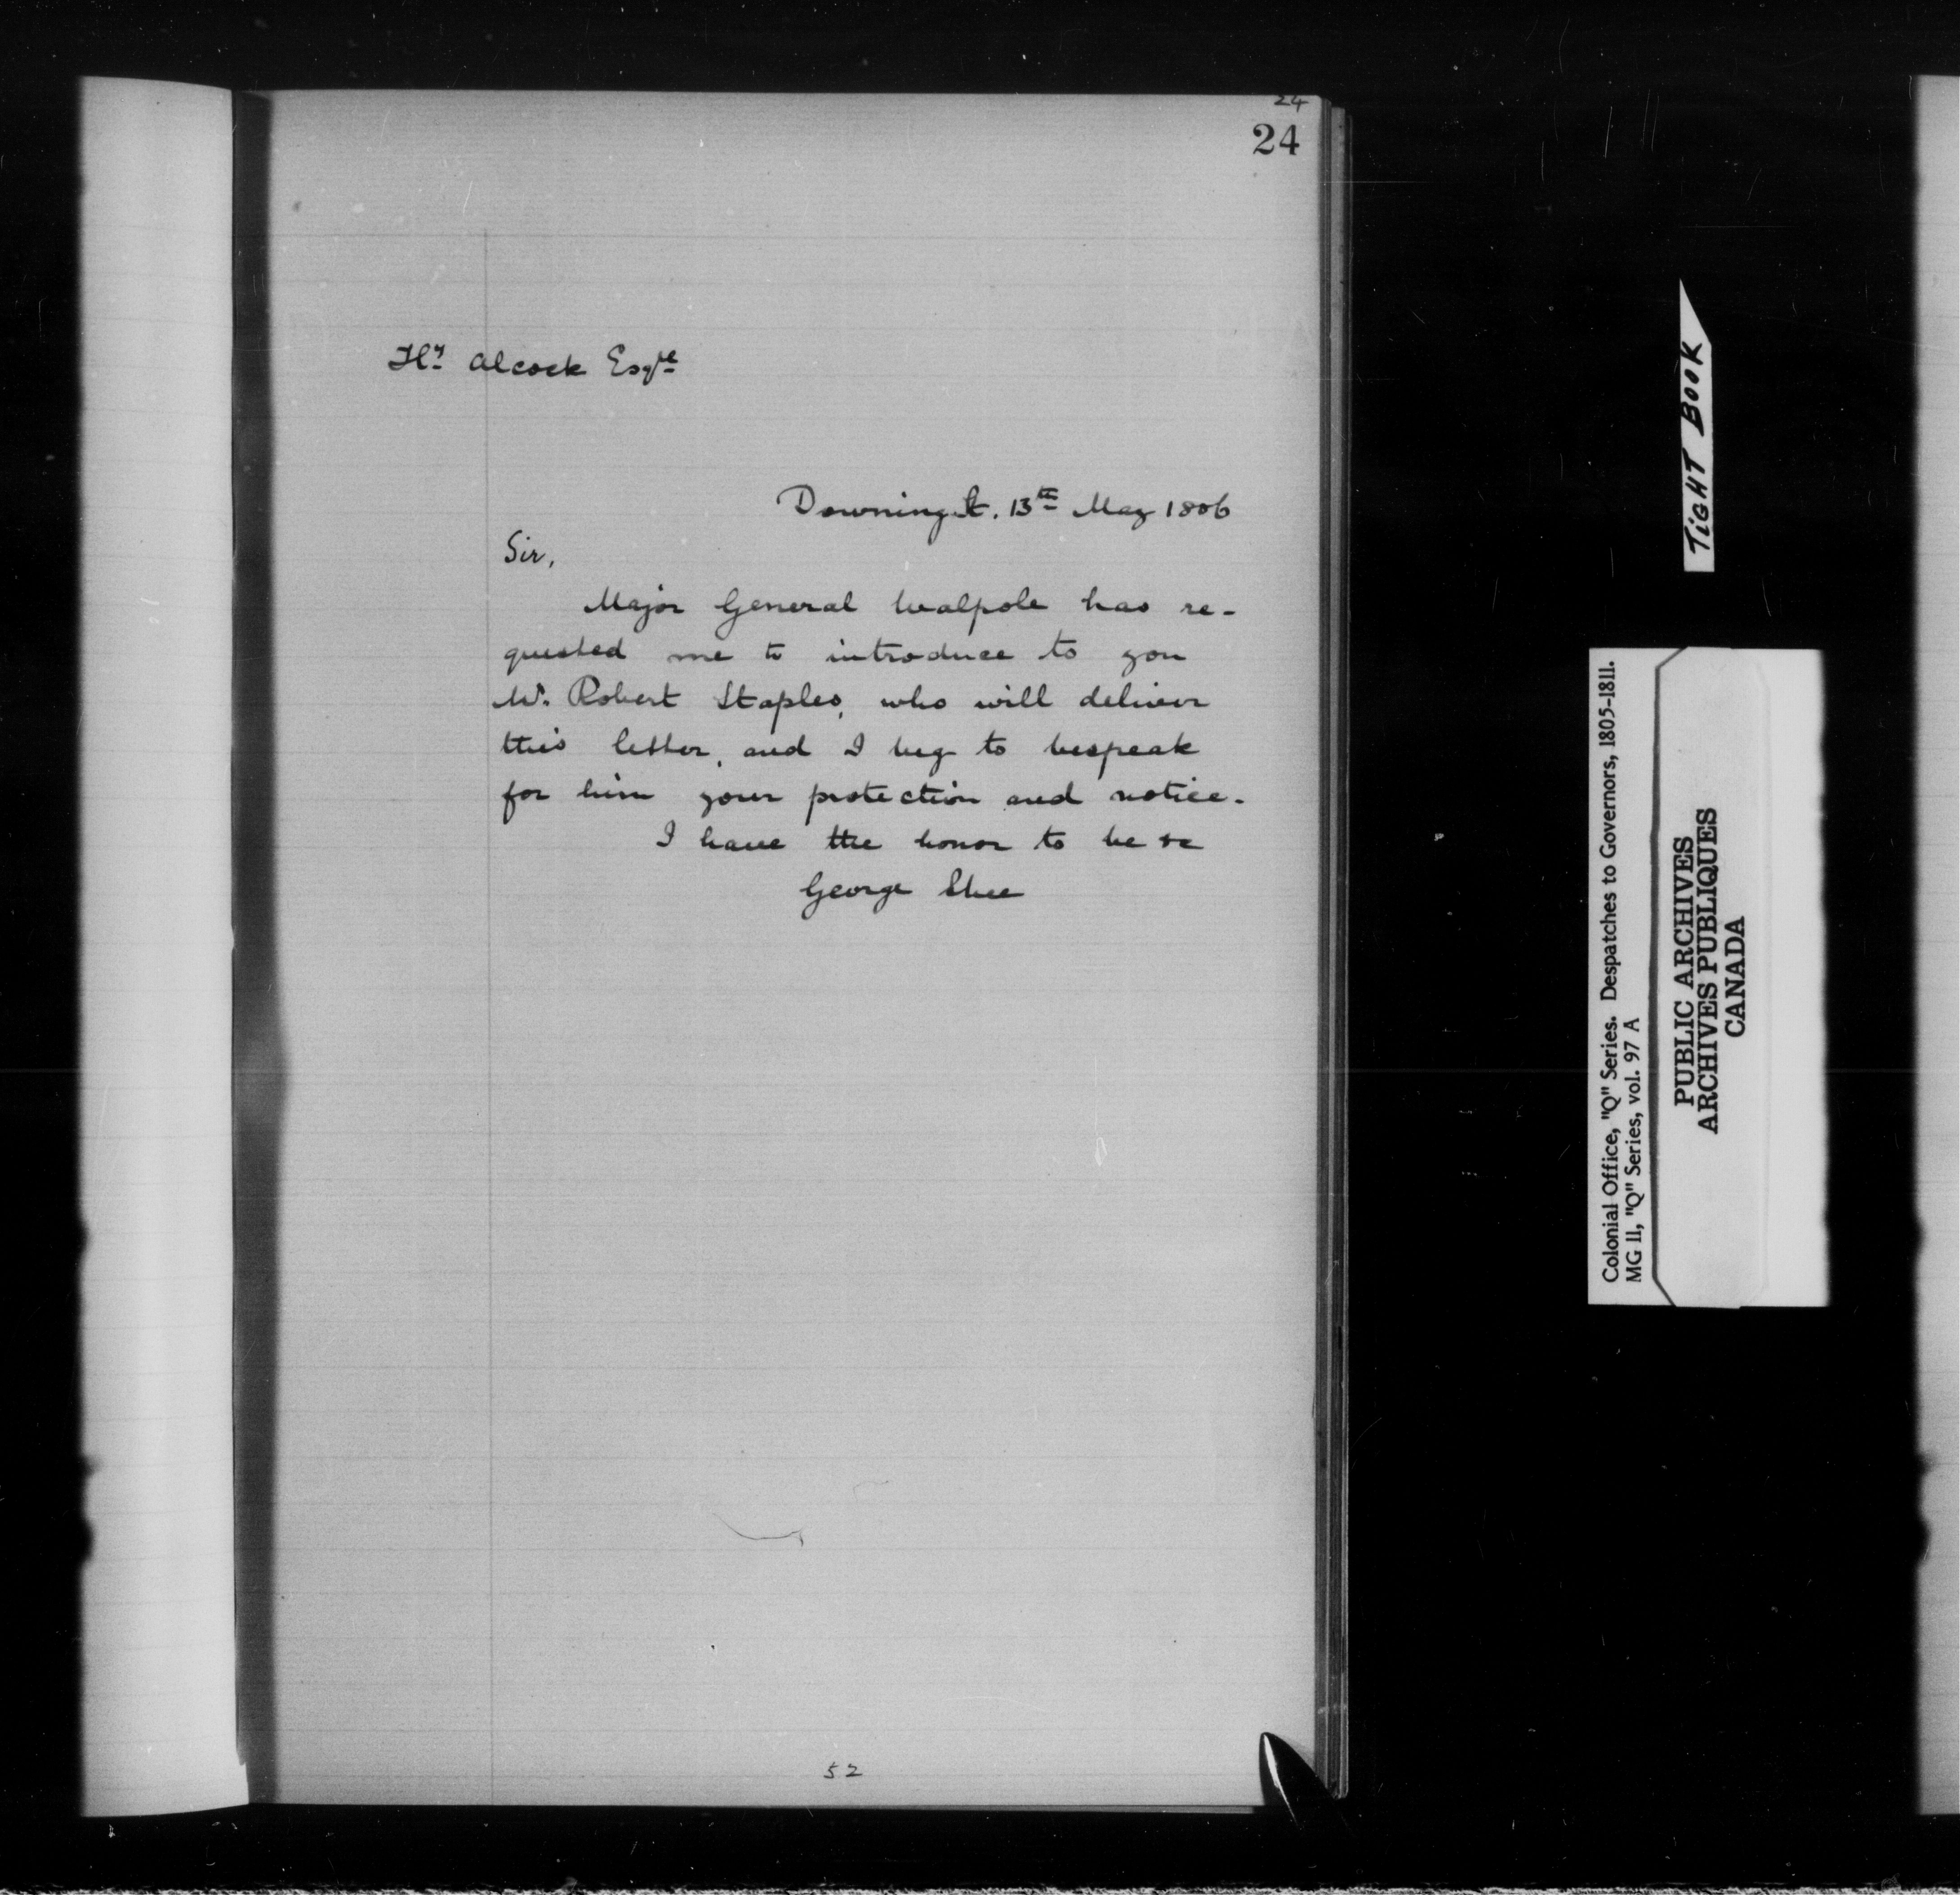 24
24
Hy Alcock Esqre
Downing St. 13th May 1806
Sir,
Major General Walpole has re-
quested me to introduce to you
Mr. Robert Staples, who will deliver
this letter, and I beg to bespeak
for him your protection and notice.
I have the honor to be &c
George Shee
52
TIGHT BOOK
Colonial Office, "Q" Series. Despatches to Governors, 1805-1811.
MG 11, "Q" Series, vol. 97 A
PUBLIC ARCHIVES
ARCHIVES PUBLIQUES
CANADA